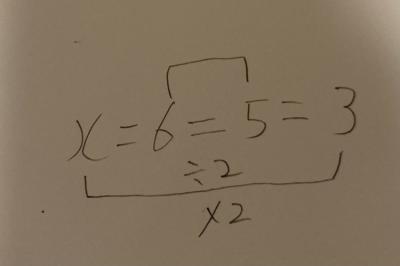 x = 6 = 5 = 3
÷2
×2